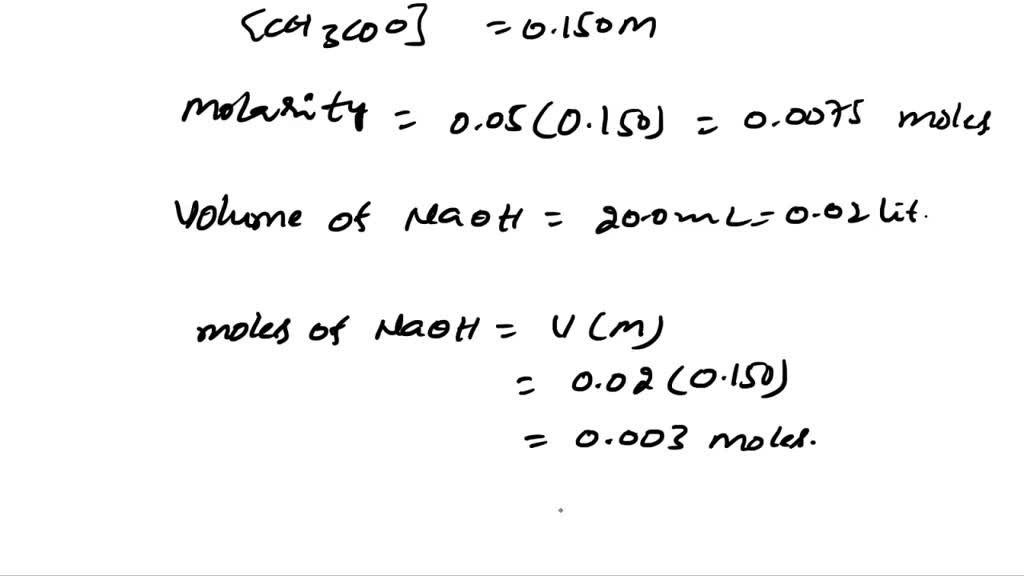 [CH3COO] = 0.150M
Molarity = 0.05(0.150) = 0.0075 moles
Volume of NaOH = 20.0mL = 0.02 lit.
moles of NaOH = V(M)
= 0.02(0.150)
= 0.003 moles.